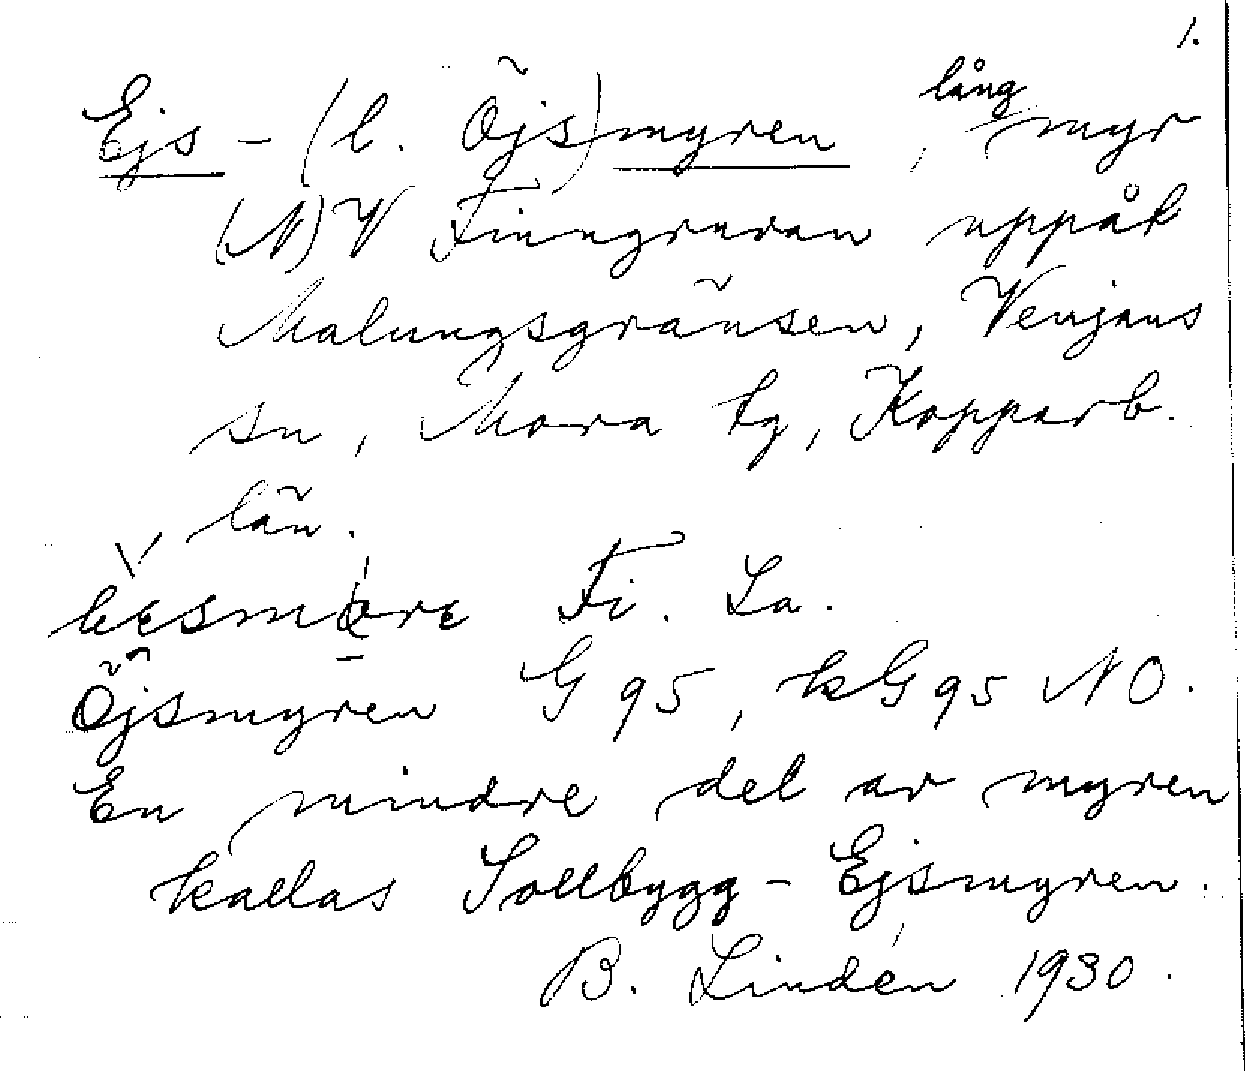 1.
Ejs - (l. Öjs)myren, lång myr
(N)V Finngruvan uppåt
Malungsgränsen, Venjans
sn, Mora tg, Kopparb.
län.
Fi. La.
Öjsmyren G 95, kG 95 NO.
En mindre del av myren
kallas Sollbygg-Ejsmyren.
B. Lindén 1930.